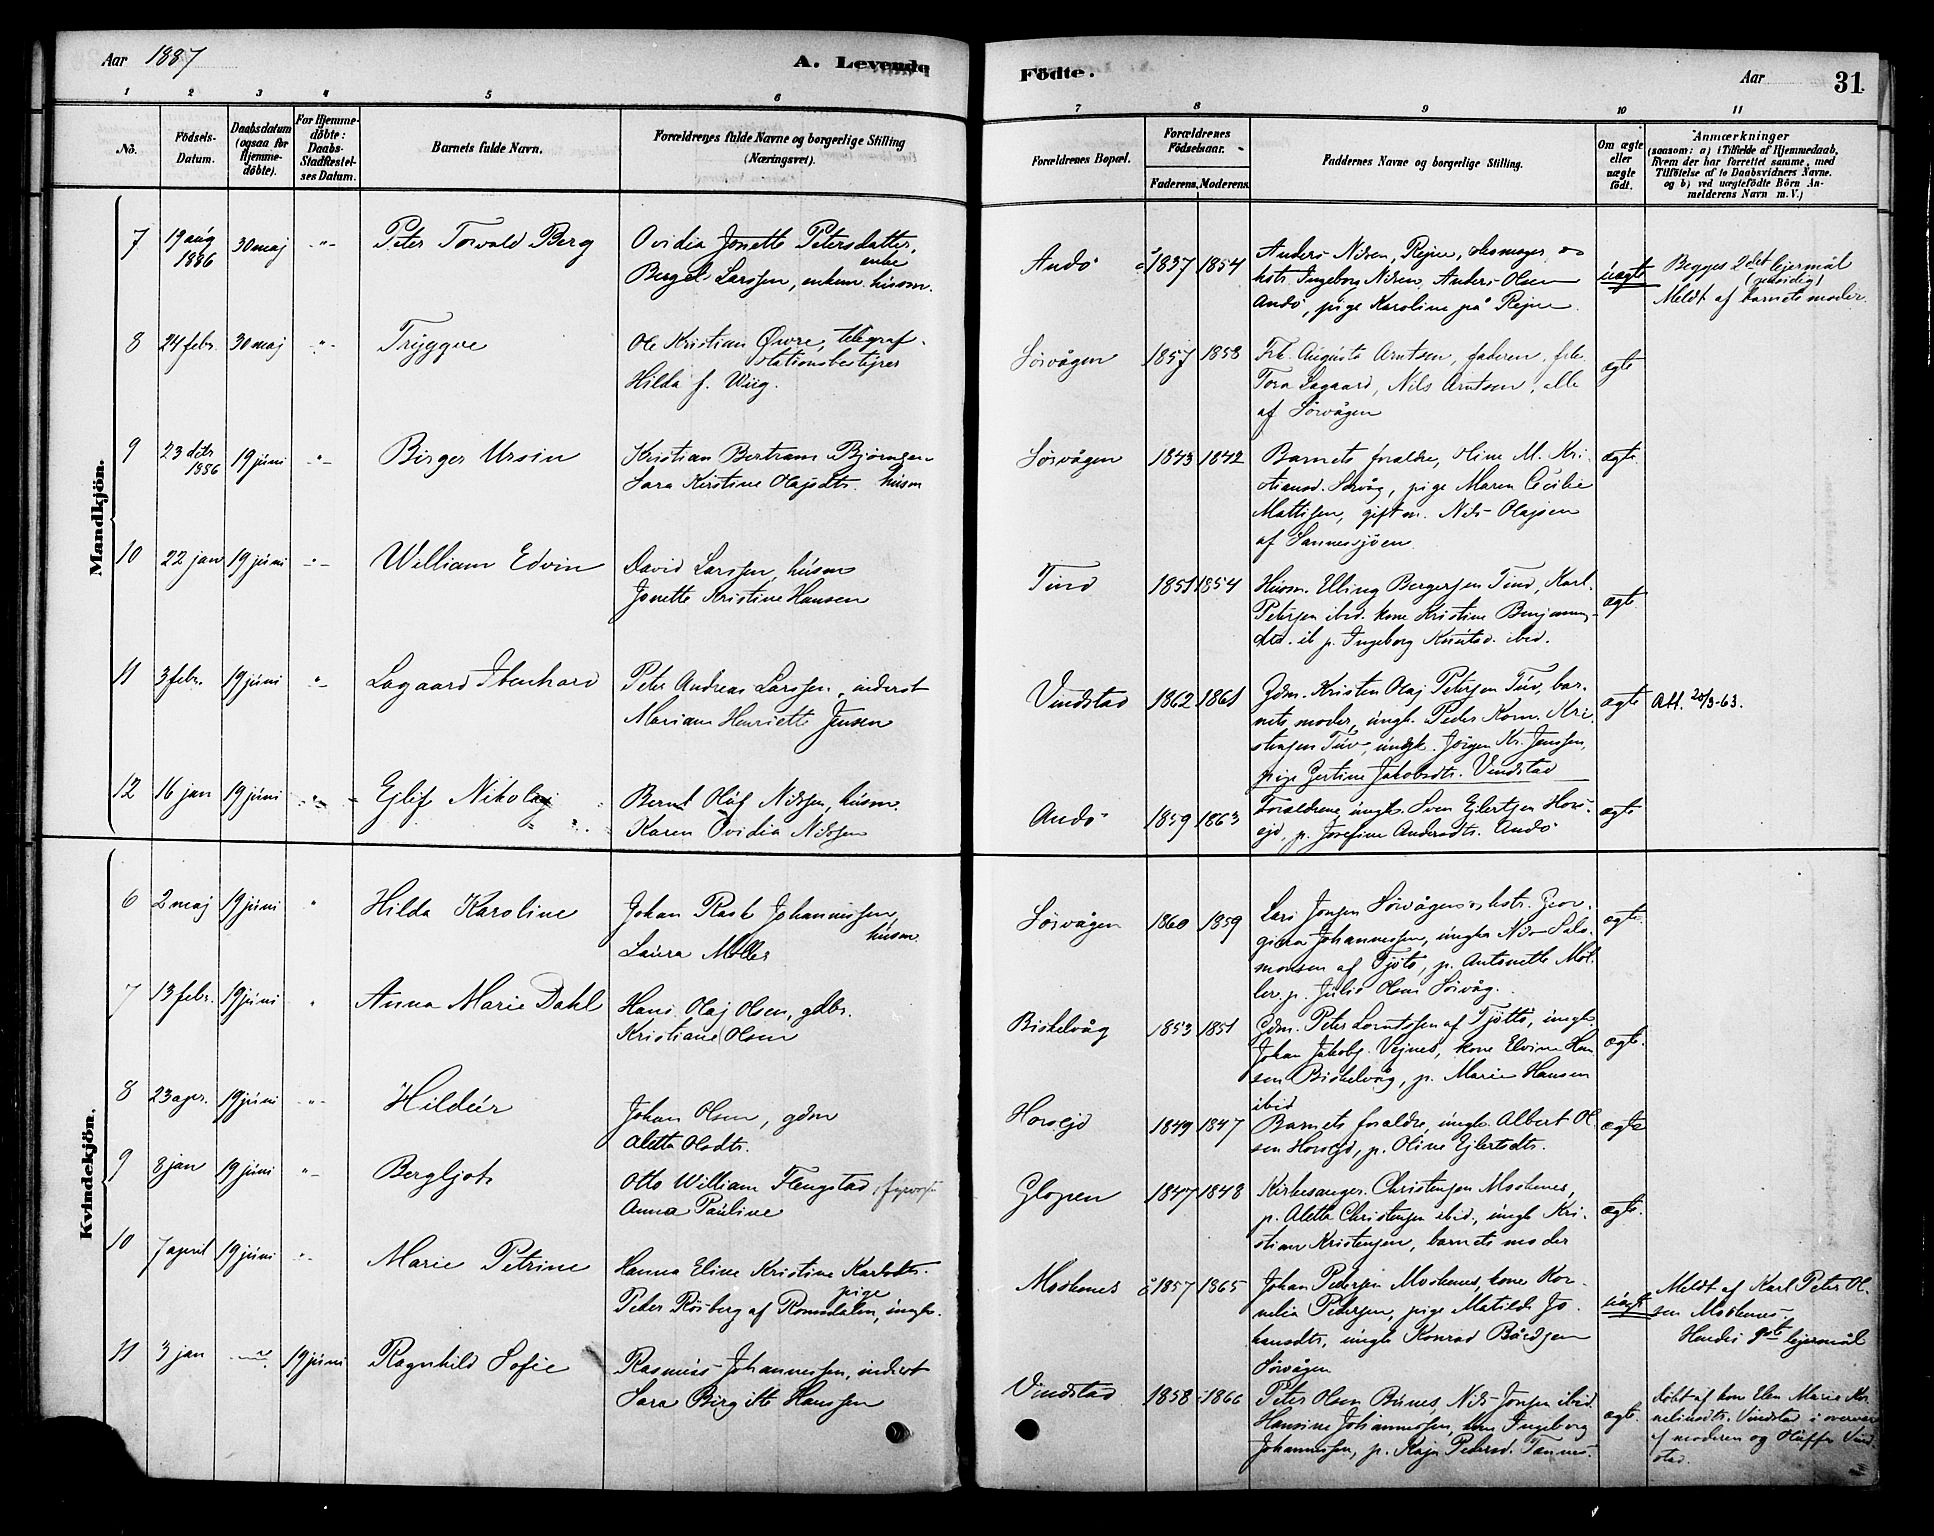 Aar 1887
A. Levende
Födte.
Aar
31
1 2 3 4 5 6 7 8 9 10 11
No.
Födsels-
Datum.
Daabsdatum
(ogsaa for
Hjemme-
döbte).
For Hjemme-
döbte:
Daabs-
Stadfæstel-
ses Datum.
Barnets fulde Navn.
Forældrenes fulde Navne og borgerlige Stilling
(Næringsvei).
Forældrenes Bopæl.
Forældrenes
Födselsaar.
Faderens. Moderens.
Faddernes Navne og borgerlige Stilling.
Om ægte
eller
uægte
födt.
Anmærkninger
(saasom: a) i Tilfælde af Hjemmedaab,
hvem der har forrettet samme, med
Tilföielse af to Daabsvidners Navne,
og b) ved uægtefödte Börn An-
melderens Navn m. V.)
Mandkjön.
7 19 aug 1886 30 maj -"- Peter Torvald Berg
Ovidia Jonette Petersdatter, enke
Bergel Larssen, enkem. húsm.
Andö å 1837 1854
Anders Nilsen, Rejne,
hstr. Ingeborg Nilsen, Anders Olsen
Andö, pige Karoline på Rejne.
úægte
Begges 2det lejermål
(gensidig)
Meldt af barnets moder.
8 24 febr. 30 maj -"- Trýggve
Ole Kristian Øvre, telegraf-
stationsbestýrer
Hilda f. Wiig.
Sörvågen 1857 1858
Frk. Augusta Arntsen, faderen, frk.
Tora Lagaard, Nils Arntsen, alle
af Sörvågen
ægte
9 23 1886 19 júni -"- Birger Ursin
Kristian Bertram Björnsen
Sara Kirstine Olajsdtr. húsm
Sörvågen 1843 1842
Barnets forældre, Oline M. Kri-
stiansd. Sörvåg, pige Maren Cecilie
Mattisen, gift m. Nils Olajsen
af Sannessjöen.
ægte.
10 22 jan 19 júni -"- William Edvin
David Larssen, húsm
Jonette Kristine Hansen
Tind 1851 1854
Húsm. Elling Bergersen Tind, Karl
Petersen ibid. kone Kristine Benjamins-
dtd. ib p. Ingeborg Knútsd. ibid.
ægte.
11 3 febr. 19 júni -"- Lagaard Ibenhard
Peter Andreas Larssen, inderst
Mariane Henriette Jensen
Vindstad 1862 1861
Gdm. Kristen Olaj Petersen Túv, bar-
nets moder, úngk. Peder Korn. Kri-
stensen Túv, úngk. Jörgen Kr. Jenssen,
pige Zertine Jakobsdtr. Vindstad
ægte
Att. 20/3-63.
12 16 jan 19 júni Ejlif Nikolaj
Bernt Olúf Nilssen, húsm.
Karen Ovidia Nilssen
Andö 1859 1863
Forældrene, úngk. Sven Ejlertsen Hors-
ejd, p. Josefine Andersdtr. Andö
ægte
Kvindekjön.
6 2 maj 19 júni " Hilda Karoline
Johan Rask Johannessen, húsm
Laúra Möller
Sörvågen 1860 1859
Lars Jonsen Sörvågen hstr. Geor-
gina Johannessen, úngk. Nils Salo-
monsen af Tjöto, p. Antonette Möl-
ler. p. Júlie Olsen Sörvåg.
ægte.
7 13 febr. 19 júni " Anna Marie Dahl
Hans Olaj Olsen, gdbr.
Kristiane Olsen
Biskelvåg 1853 1851
Gdm. Peter Lorntssen af Tjötto, úngk.
Johan Jakobs. Vejnes, kone Elvine Han-
sen Biskelvåg, p. Marie Hansen
ibid
ægte.
8 23 apr. 19 júni -"- Hildúr
Johan Olsen, gdm
Aletta Olsdtr.
Horsejd 1849 1847
Barnets forældre, úngk. Albert Ol-
sen Horsejd, p. Oline Ejlertsdtr.
ægte
9 8 jan 19 júni "- Bergljot
Otto William Flengstad,
Anna Paúline
Glopen 1847 1848
Kirkesanger Christensen Moskenes,
p. Aletta Christensen ibid., úngk. Kri-
stian Kristensen, barnets moder
ægte.
10 7 april 19 júni "- Marie Petrine
Hanna Eline Kristine Karlsdtr. pige
Peder Rösberg af Romsdalen, úngk.
Moskenes å 1857 1865
Johan Pedersen Moskenes, kone Kor-
nelia Pedersen, pige Matilde Jo-
hansdtr, úngk Konrad Bårdsen
Sörvågen
úægte
Meldt af Karl Peter Ol-
sen Moskenes
Hendes lejermål
11 3 jan 19 júni Ragnhild Sofie
Rasmús Johannessen, inderst
Sara Birgitte Hanssen
Vindstad 1858 1866
Peter Olsen Búnes, Nils Jonsen ibid.
Hansine Johannessen, kone Ingeborg
Johannessen, p. Kaja Pedersd. Tennes-
ægte.
döbt af kone Elen Marie Kor-
neliusdtr. Vindstad i overvær
af moderen og Vind-
stad.